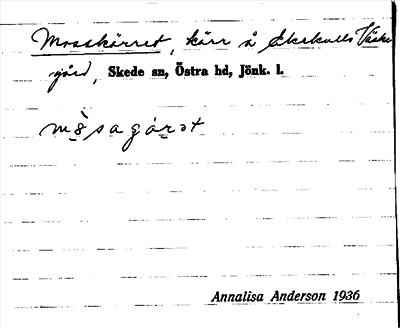 Mosskärret, kärr å Ekekulls Väster
gård, Skede sn, Östra hd, Jönk. l.
Annalisa Anderson 1936